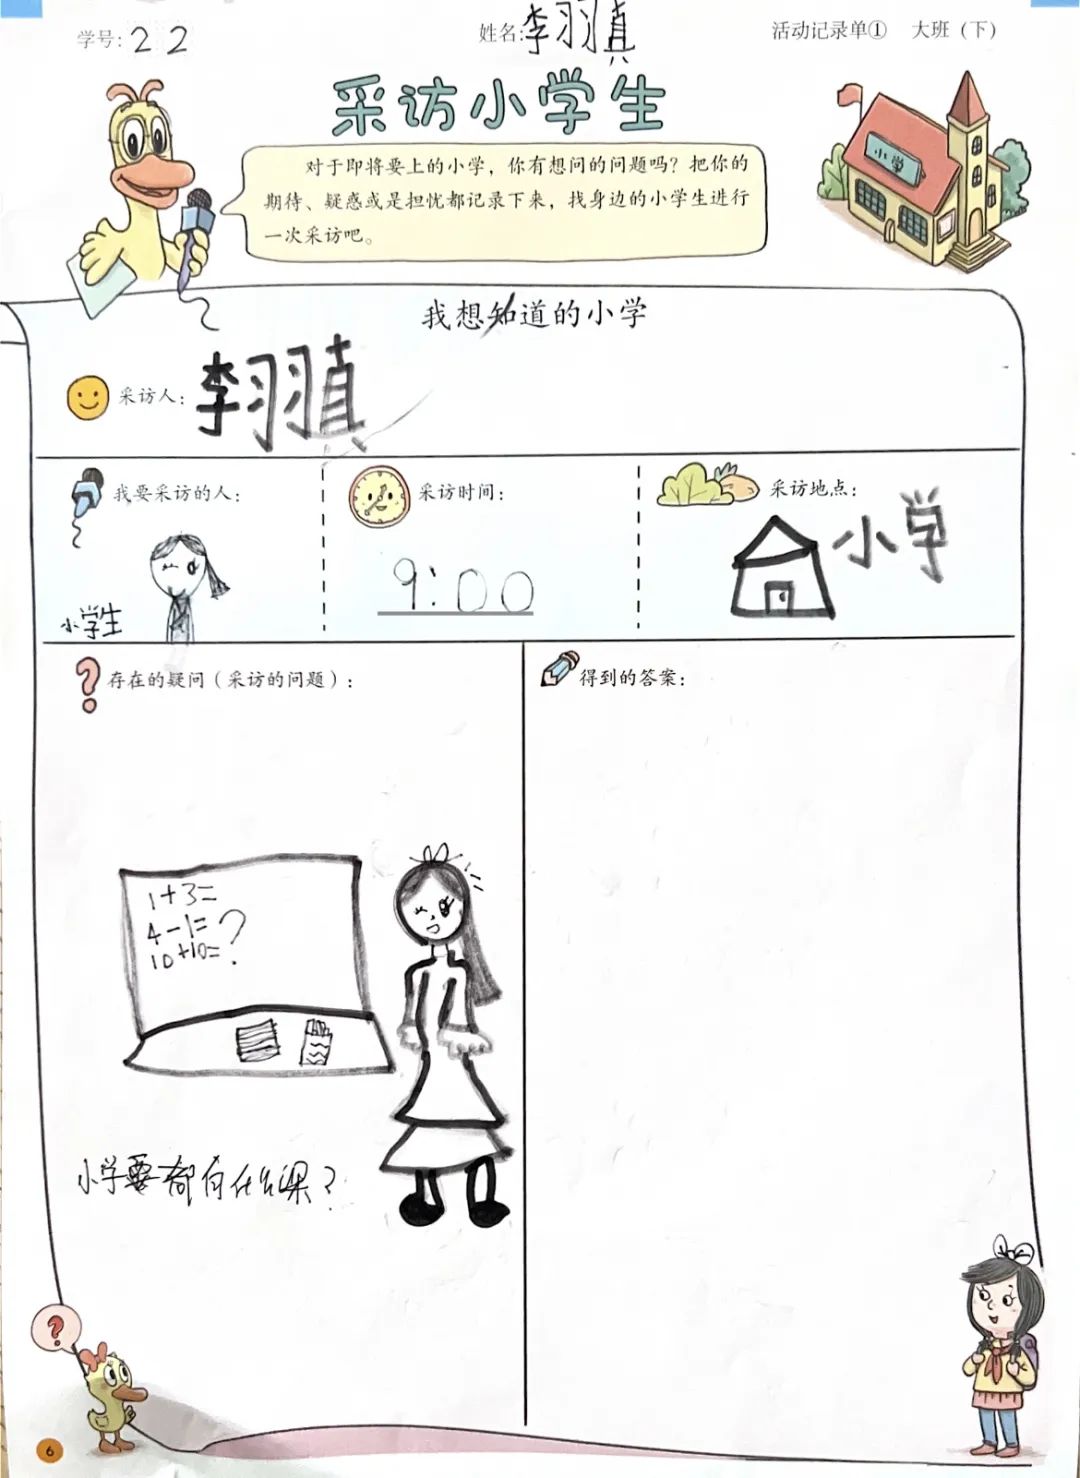 学号：22
姓名：李羽真
活动记录单① 大班（下）
采访小学生
对于即将要上的小学，你有想问的问题吗？把你的
期待、疑惑或是担忧都记录下来，找身边的小学生进行
一次采访吧。
小学
我想知道的小学
采访人：李羽真
我要采访的人：
小学生
采访时间：
9:00
采访地点：
小学
存在的疑问（采访的问题）：
1+3=
4-1=?
10+10=
小学要都有什么课？
得到的答案：
?
6